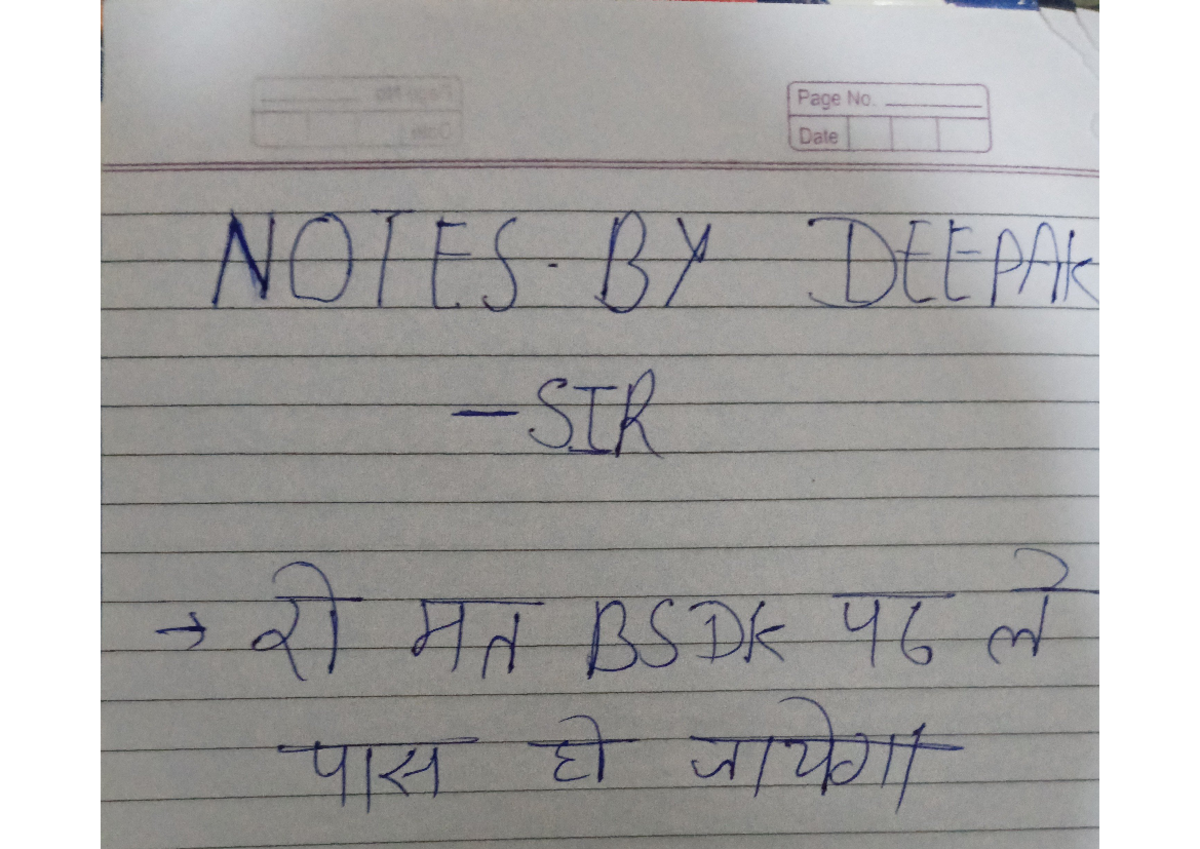 Page No.
Date
NOTES. BY DEEPAK
- SIR
→ रो मत BSDK पढ ले
पास हो जायेगा